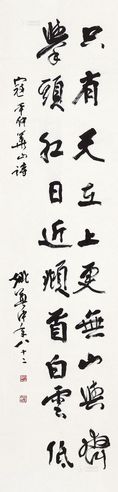 只有天在上更無山與齊
舉頭紅日近頫首白雲低
寇平仲華山詩
姚奠中年八十二